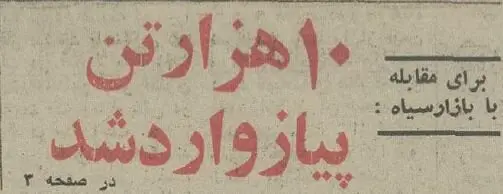 برای مقابله
با بازار سیاه :
۱۰ هزار تن
پیاز وارد شد
در صفحه ۳